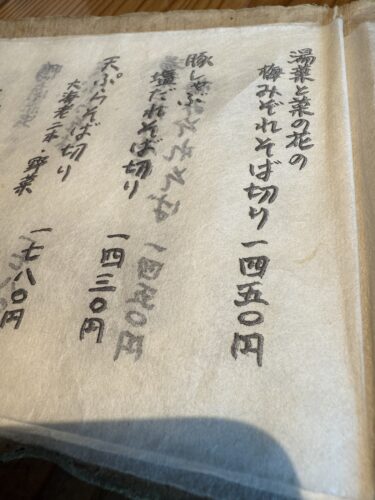 湯葉と菜の花の
梅みぞれそば切り 一四五〇円
豚しゃぶ
塩だれそば切り 一四三〇円
天ぷらそば切り
大海老二本・野菜 一七八〇円